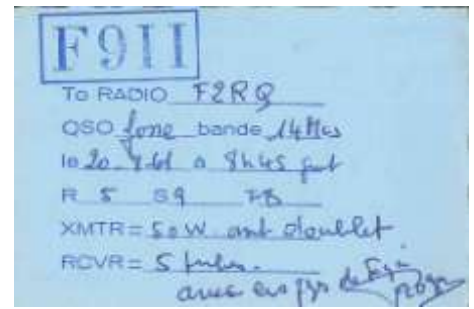 F9II
To RADIO F2RQ
QSO fone bande 14 Mcs
le 20 à 8h45 gmt
R 5 S9 FB
XMTR = 50W ant doublet
RCVR = 5 tubes.
avec